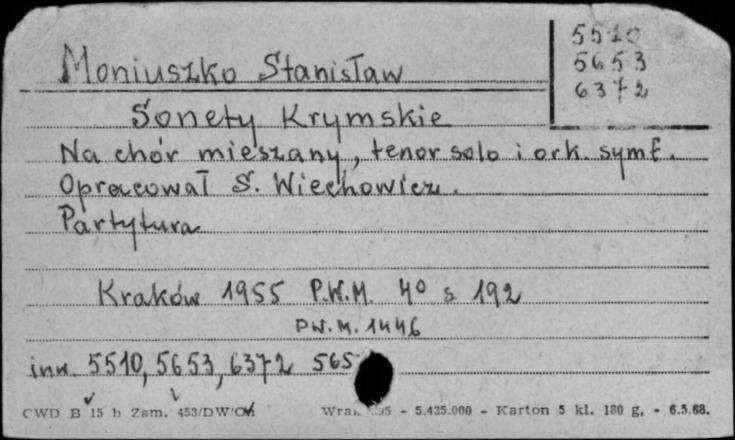 5510
5653
6372
Moniuszko Stanisław
Sonety Krymskie
Na chór mieszany, tenor solo i ork. symf.
Opracował S. Wiechowicz.
Partytura
Kraków 1955 P.W.M. 4° s 192
PW.M. 1446
inw. 5510, 5653, 6372 565
CWD B 15 b Zam. 453/DW/ - 5.435.000 - Karton 5 kl. 180 g. - 6.5.68.